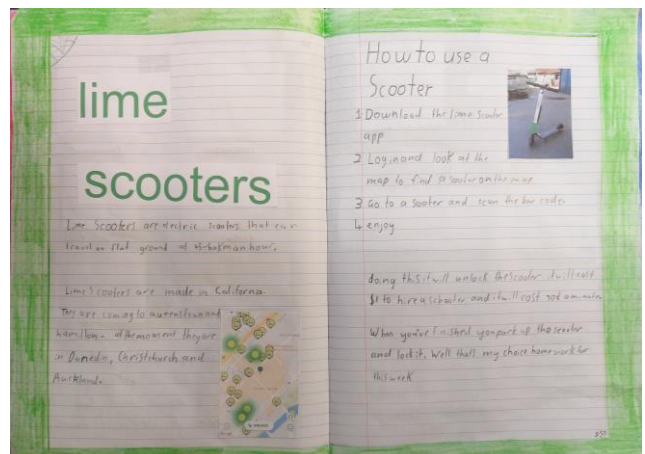 lime
scooters
Lime Scooters are electric scooters that can
travel on flat ground at an hour.
Lime Scooters are made in California.
They are coming to queenstown and
hamilton. at the moment they are
in Dunedin, Christchurch and
Auckland.
How to use a
Scooter
1 Download the lime Scooter
app
2 Login and look at the
map to find a scooter on the map
3 Go to a Scoter and scan the bar code
4 enjoy
doing this it will unlock the scooter it will cost
$1 to hire a scooter and it will cost a minute
When you've finished you park up the scooter
and lock it. Well thats my choice home work for
this week